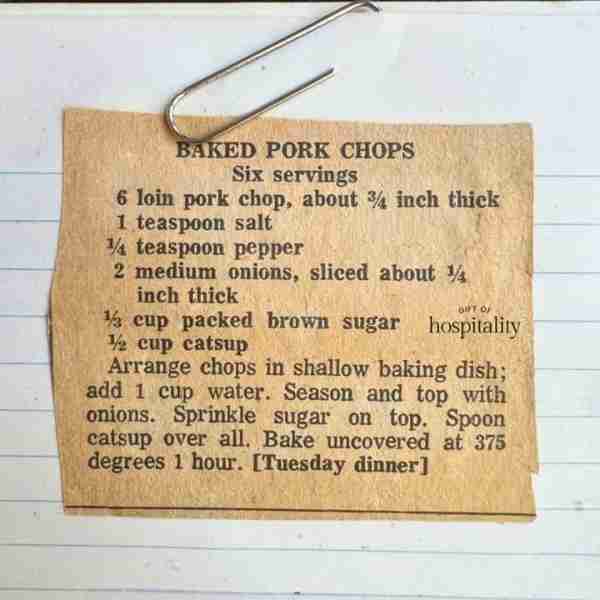 BAKED PORK CHOPS
Six servings
6 loin pork chop, about ¾ inch thick
1 teaspoon salt
¼ teaspoon pepper
2 medium onions, sliced about ¼
inch thick
⅓ cup packed brown sugar
½ cup catsup
GIFT OF
hospitality
Arrange chops in shallow baking dish;
add 1 cup water. Season and top with
onions. Sprinkle sugar on top. Spoon
catsup over all. Bake uncovered at 375
degrees 1 hour. [Tuesday dinner]